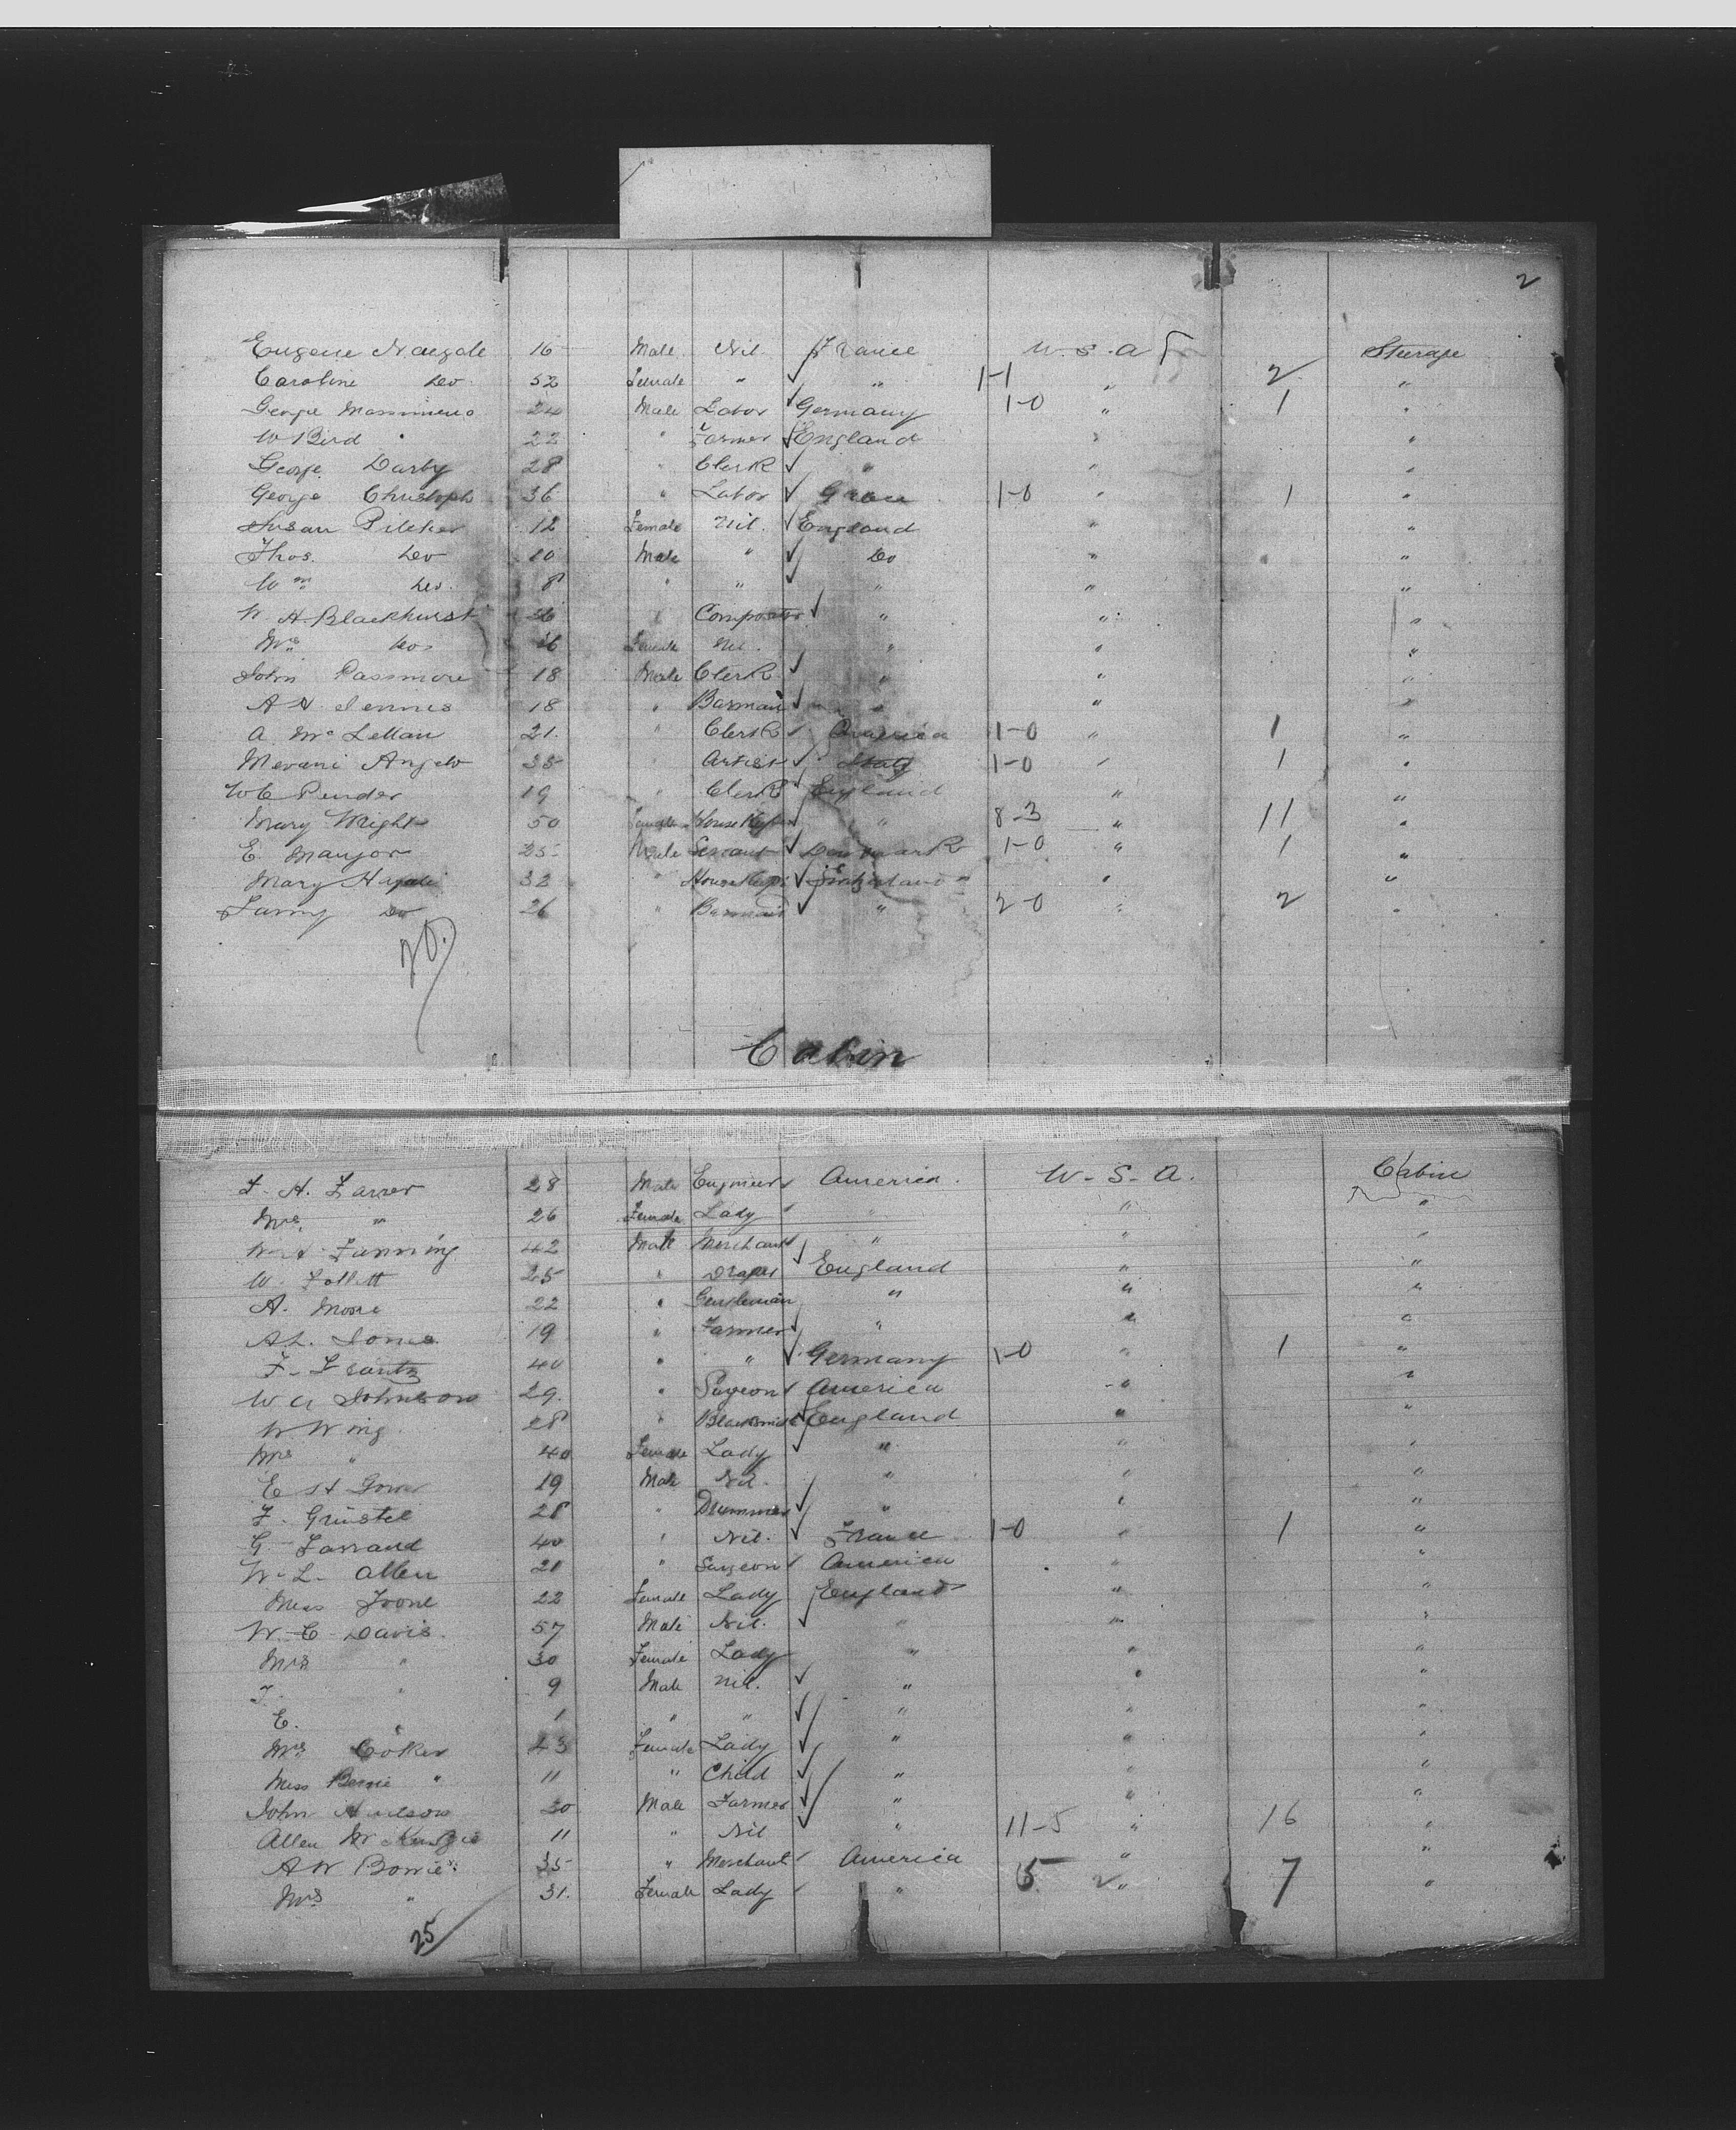 2
Eugene Naugale 16 Male Nil France U.S.A Steerage
Caroline Do 52 Female " " 1-1 " 2 "
George 24 Male Labor Germany 1-0 " 1 "
W Bird 22 " Farmer England " "
George Darby 28 " Clerk " " "
George Christoph 36 " Labor Greece 1-0 " 1 "
Susan Pilcher 12 Female Nil. England " "
Thos. Do 10 Male " Do " "
Wm Do. 8 " " " " "
W H Blackhurst 26 " Compositor " " "
Mrs Do 26 Female Nil. " " "
John Passmore 18 Male Clerk " " "
A H Dennis 18 " Barman " " "
A. McLellan 21. " Clerk America 1-0 " 1 "
Mevani Angelo 35 " Artist Italy 1-0 " 1 "
W C Pender 19 " Clerk England " "
Mary Wright 50 Female House Keeper " 8-3 " 11 "
E. Manjor 25 Male Servant Denmark 1-0 " 1 "
Mary 32 " House Keeper Switzerland " "
Fanny Do 26 " Barmaid " 2-0 " 2 "
20.
Cabin
F. H. Farrer 28 Male Engineer America. U-S-A. Cabin
Mrs. " 26 Female Lady " " "
Fanning 42 Male Merchant " " "
W. Follett 25 " Draper England " "
A. Moore 22 " Gentleman " " "
A L. Jones 19 " Farmer " " "
F- 40 " " Germany 1-0 " 1 "
W A Johnson 29. " Surgeon America " "
W Wing 28 " Blacksmith England " "
Mrs " 40 Female Lady " " "
E St 19 Male Nil. " " "
F. 28 " Drummer " " "
G. Farrand 40 " Nil. France 1-0 " 1 "
W-L- Allen 28 " Surgeon America " "
Miss 22 Female Lady England " "
W.-C- Davis. 57 Male Nil. " " "
Mrs " 30 Female Lady " " "
T. " 9 Male Nil. " " "
E. " 1 " " " " "
Mrs Coker 43 Female Lady " " "
Miss " 11 " Child " " "
John 20 Male Farmer " " "
Allen McKenzie 11 " Nil " 11-5 " 16 "
A W Bowie 35 " Merchant America " "
Mrs " 31. Female Lady " 5 2 " 7 "
25